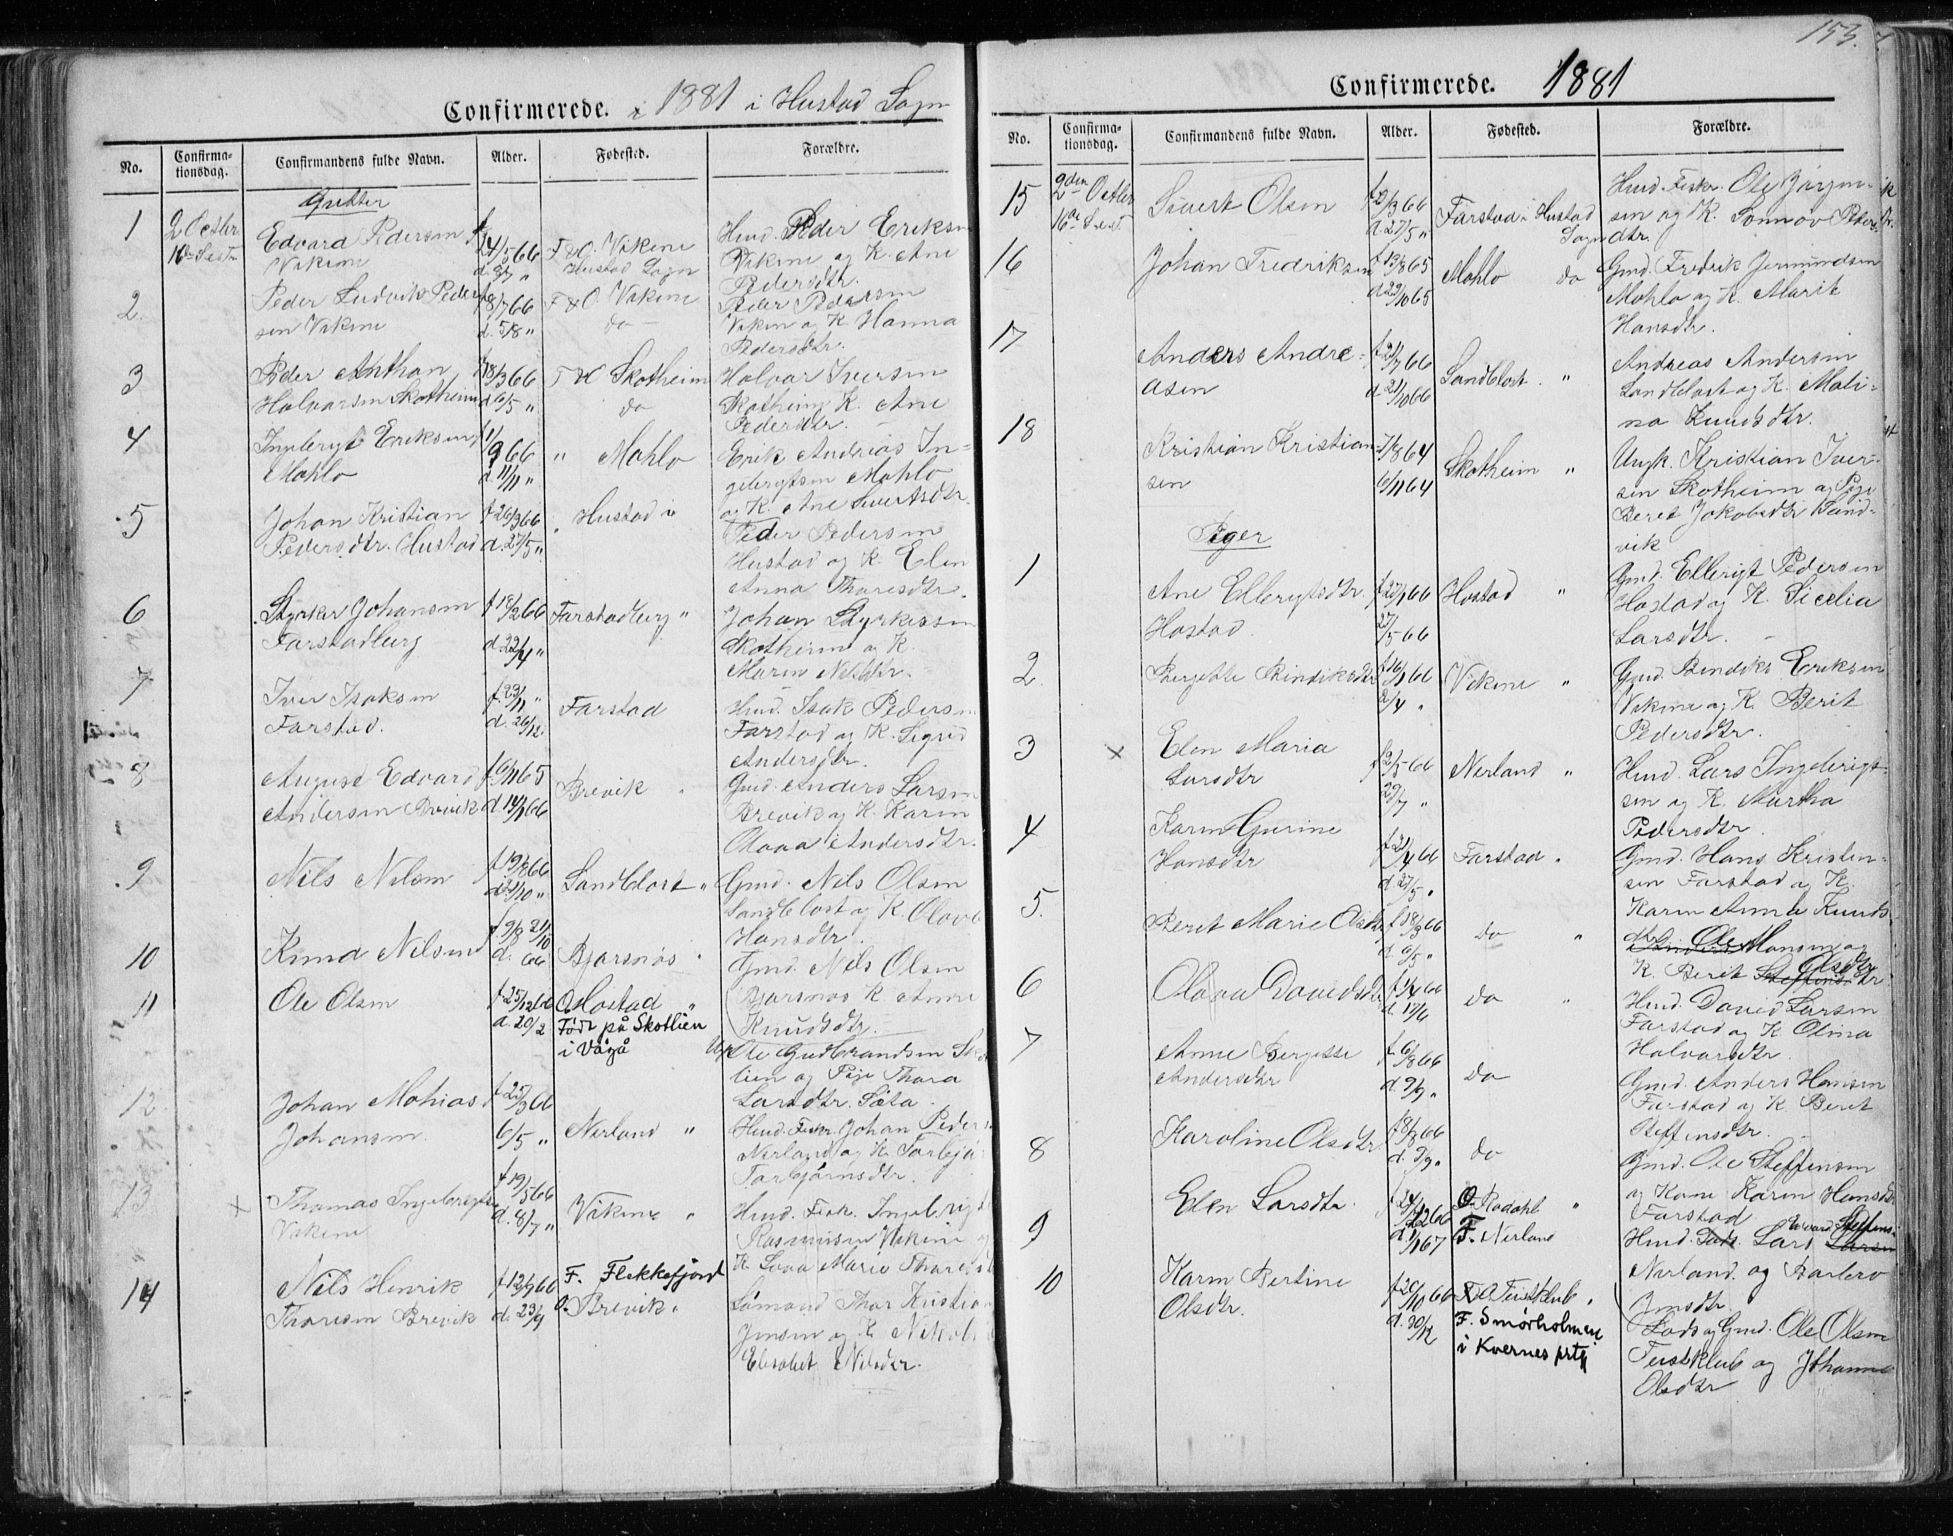 Confirmerede. i 1881 i Hustad Sogn
No.
Confirma-
tionsdag.
Confirmandens fulde Navn.
Alder.
Fødested.
Forældre.
Gutter
1
2 Octbr
Edvard Pedersen
24/5 66
F & O. Vikene
Hmd. Peder Eriksen
Vikene
Hustad Sogn
Vikene og K. Ane
Pedersdtr.
2.
Peder Ludvik Peder
8/7 66
F & O. Vikene
Peder Pedersen
sen Vikene
d. 5/8 "
do
Viken og K Hanna
Pedersdtr.
3
Peder Anthon
18/3 66
F & O Skotheim
Halvor Iversen
Halvorsen Skotheim
d 6/5 "
do
Skotheim K. Ane
Pedersdtr.
4
Ingebrigt Eriksen
9 66
" Mohlo
Erik Andreas In-
Mohlo
d 11/11 "
gebrigtsen Mohlo
og K. Ane Sivertsdtr.
5
Johan Kristian
f 26/3 66
Hustad
Peder Pedersen
Pedersdtr. Hustad
d. 27/5 "
Hustad og K. Elen
Anna Tharesdtr.
6
Styrker Johansen
f 18/2 66
Farstadberg "
Johan Styrkessen
Farstadberg
d 22/4 "
Skotheim og K.
Maren Nilsdtr.
7
Iver Isaksen
f. 23/11 "
Farstad
Hmd. Isak Pedersen
Farstad.
d. 26/12.
Farstad og K. Sigrid
Andersdtr.
8
August Edvard
f. 6/11 65
Brevik "
Gmd. Anders Larsen
Andersen Brevik
d 14/1 66
Brevik og K. Karen
Olava Andersdtr.
9
Nils Nilsen
f 19/8 66
Sandblost "
Gmd. Nils Olsen
d 21/10 "
Sandblost og K. Olava
Hansdtr.
10
Knud Nilsen
f 9/9 21/10
d. 66
Bjørsnøs "
Gmd. Nils Olsen
Bjørsnøs K. Anne
Knudsdtr.
11
Ole Olsen
f 25/12 66
O Hostad "
d. 20/2
Født på Skotlien
i Vågå
Ole Gudbrandsen
lien og Pige Thora
Larsdtr. Sæta.
12.
Johan Mathias
f 25/3 66
Johansen.
6/5 "
Nerland "
Hmd. Fisker Johan Peders
Nerland og K. Torbjør
Torbjørnsdtr.
13
×
Thomas Ingebrigtsen
f 19/5 66
Vikene "
Hmd. Fisk. Ingebrigt
Vikene
d. 8/7 "
Rasmussen Vikene
K. Lova Marie Tharesdtr
14
Nils Henrik
f 12/7 66
F. Flekkefjord
Sømand Thor Kristian
Tharesen Brevik
d. 23/9
O. Brevik "
Jensen og K. Nikol
Elisabet Nilsdtr.
153.
Confirmerede. 1881
No.
Confirma-
tionsdag.
Confirmandens fulde Navn.
Alder.
Fødested.
Forældre.
15
2den Octbr
Sivert Olsen
f 2/3 66
Farstad i Hustad
Hmd. Fiskr. Ole Jørgen-
d 27/5 "
Sogn
sen og K. Sønnøv Peders
dtr.
16
Johan Fredriksen
f 19/8 65
Mohlo
do
Gmd. Fredrik Germundsen
d 22/10 65
Mohlo og K. Marit
Hansdtr.
17
Anders Andre-
f 21/7 66
Sandblost. "
Andreas Andersen
asen
d. 21/10 66
Sandblost og K. Mali-
na Knudsdtr.
18
Kristian Kristian-
7/8 64
Skotheim "
Ungk. Kristian Iver-
sen
6/11 64
sen Skotheim og Pige
Beret Jakobsdtr Sand-
vik
Piger
1
Ane Ellerigtsdtr
f 27/1 66
Hostad "
Gmd. Ellerigt Pedersen
Hostad.
27/5 66
Hostad og K. Sicelia
Larsdtr.
2.
Bergette Bendiksdtr
f 16/1 66
Vikene "
Gmd. Bendiks Eriksen
2/4 "
Vikene og K. Berit
Pedersdtr.
3
×
Elen Maria
f 2/5 66
Nerland "
Hmd. Lars Ingebrigt-
Larsdtr
29/7 "
sen og K. Martha
Pedersdtr.
4
Karen Gurine
f 21/4 66
Farstad "
Gmd. Hans Kristen-
Hansdtr
d 27/5 "
sen Farstad og K.
Karen Anne Knuds
dtr.
5.
Berit Marie Olsdtr
f 18/3 66
do "
Ole Hansen og
d 6/5 "
K. Berit Olsdtr
6
Olava Davidsdtr
f 14/4 66
do "
Hmd. David Larsen
d. 17/6
Farstad og K Olina
Halvorsdtr.
7
Anne Bergitte
f 6/8 66
do
Gmd. Anders Hansen
Andersdtr
d. 9/9 "
Farstad og K. Berit
Steffensdtr.
8
Karoline Olsdtr
f 8/8 66
do
Gmd. Ole Steffensen
d. 9/9 "
og Kone Karen Hansdtr
Farstad
9
Elen Larsdtr.
O. Rødahl "
Hmd. Lars
1/1 67
F. Nerland
Nerland. og Barbro
Jensdtr.
10
Karen Bertine
f 20/10 66
F O Teistklub "
Lods og Gmd. Ole Olsen
Olsdtr.
d. 30/12
F. Smørholmen
Teistklub og Johanne
i Kvernes prtg
Olsdtr